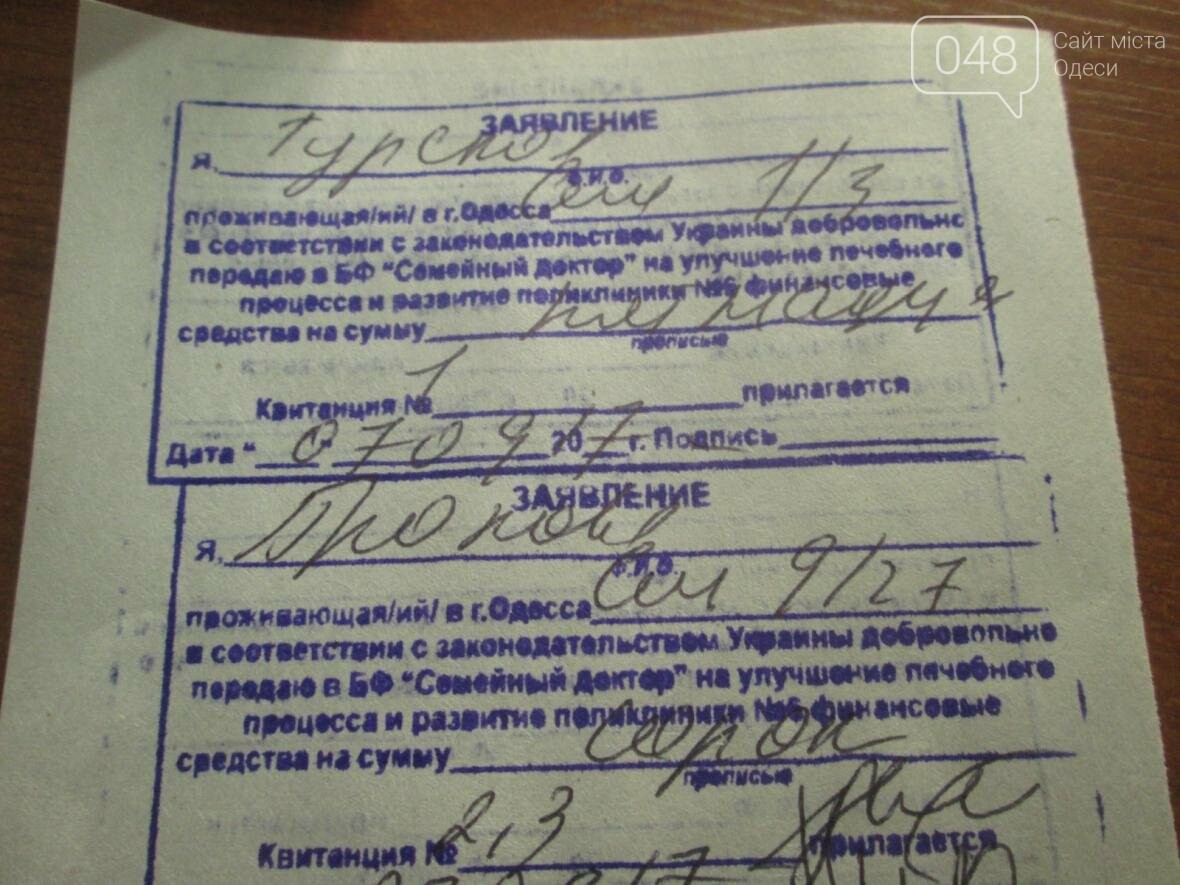 048 Сайт міста
Одеси
ЗАЯВЛЕНИЕ
Я,
Ф.И.О.
проживающая/ий/ в г.Одесса 1/3
в соответствии с законодательством Украины добровольно
передаю в БФ "Семейный доктор" на улучшение лечебного
процесса и развитие поликлиники №6 финансовые
средства на сумму
прописью
Квитанция № 1 прилагается
Дата " 07 09 2017 г. Подпись
ЗАЯВЛЕНИЕ
Я,
Ф.И.О.
проживающая/ий/ в г.Одесса 9/27
в соответствии с законодательством Украины добровольно
передаю в БФ "Семейный доктор" на улучшение лечебного
процесса и развитие поликлиники №6 финансовые
средства на сумму сорок
прописью
Квитанция № 2,3 прилагается